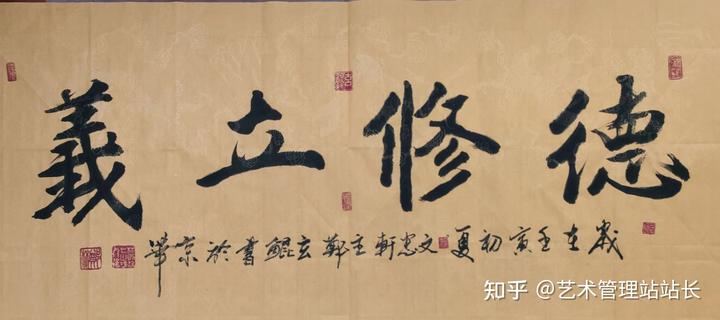 德修立義
歲在壬寅初夏文軒主鄭玄鯤書於京華
知乎 @艺术管理站站长